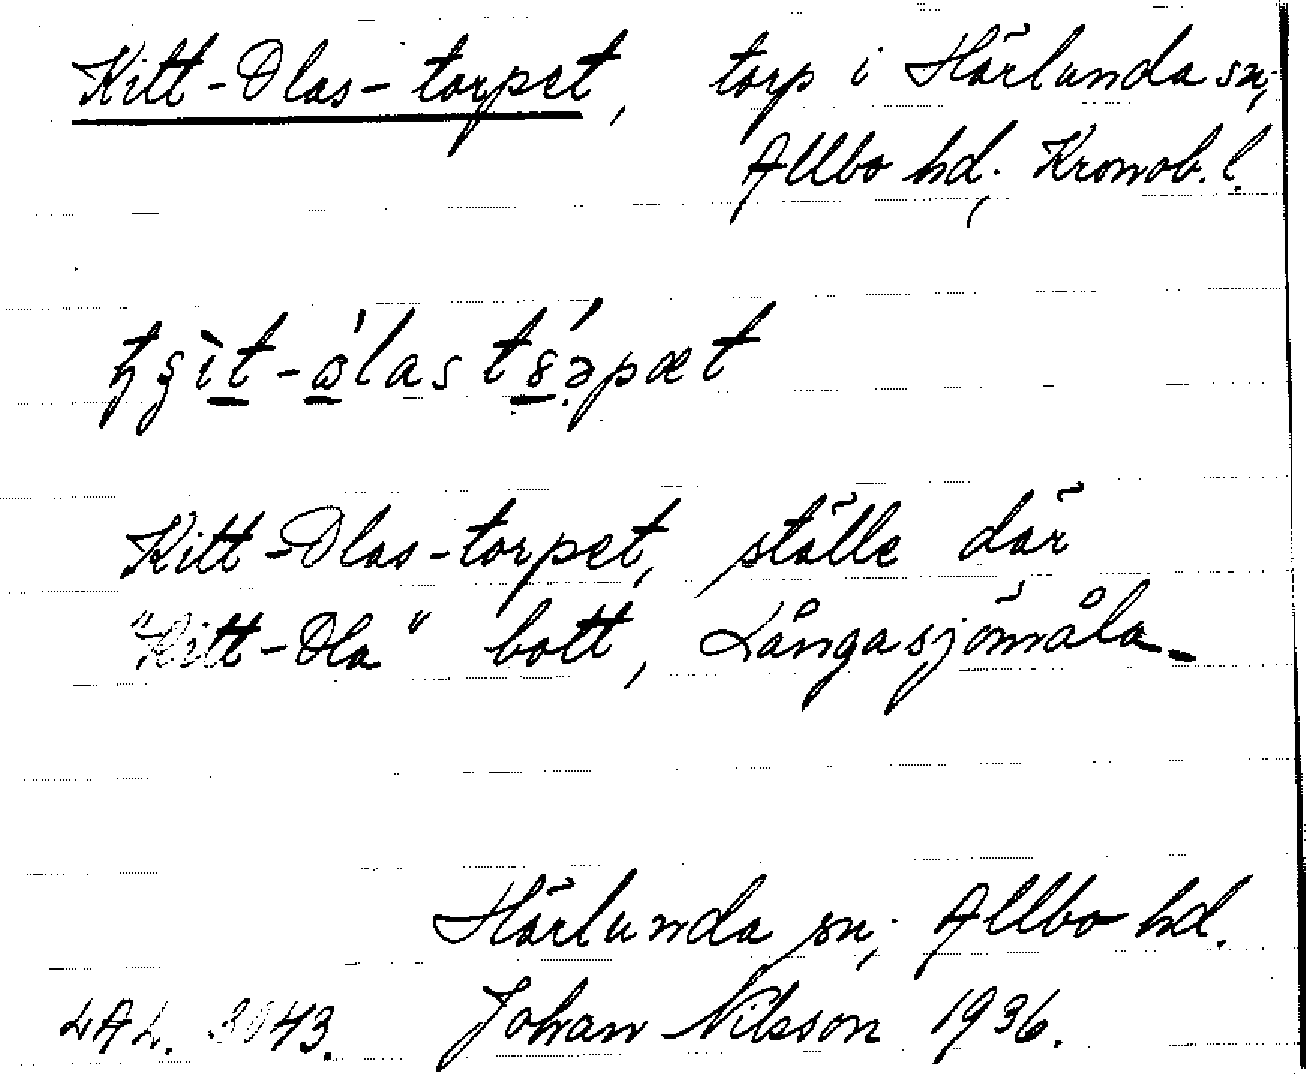 Kitt-Olas-torpet, torp i Härlunda sn,
Allbo hd, Kronob. l.
Kitt-Olas-torpet, ställe där
"Kitt-Ola" bott, Långasjömåla.
Härlunda sn, Allbo hd.
LAL. 3943. Johan Nilsson 1936.